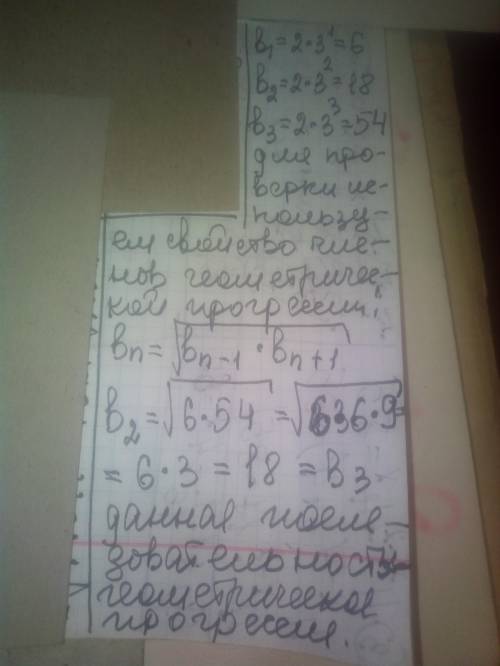 в₁ = 2·3¹ = 6
в₂ = 2·3² = 18
в₃ = 2·3³ = 54
для про-
верки ис-
пользу-
ем свойство чле-
нов геометричес-
кой прогрессии:
вn = √(вn-1 · вn+1)
в₂ = √(6·54) = √(36·9) =
= 6·3 = 18 = в₃
данная после-
довательность -
геометрическая
прогрессия.